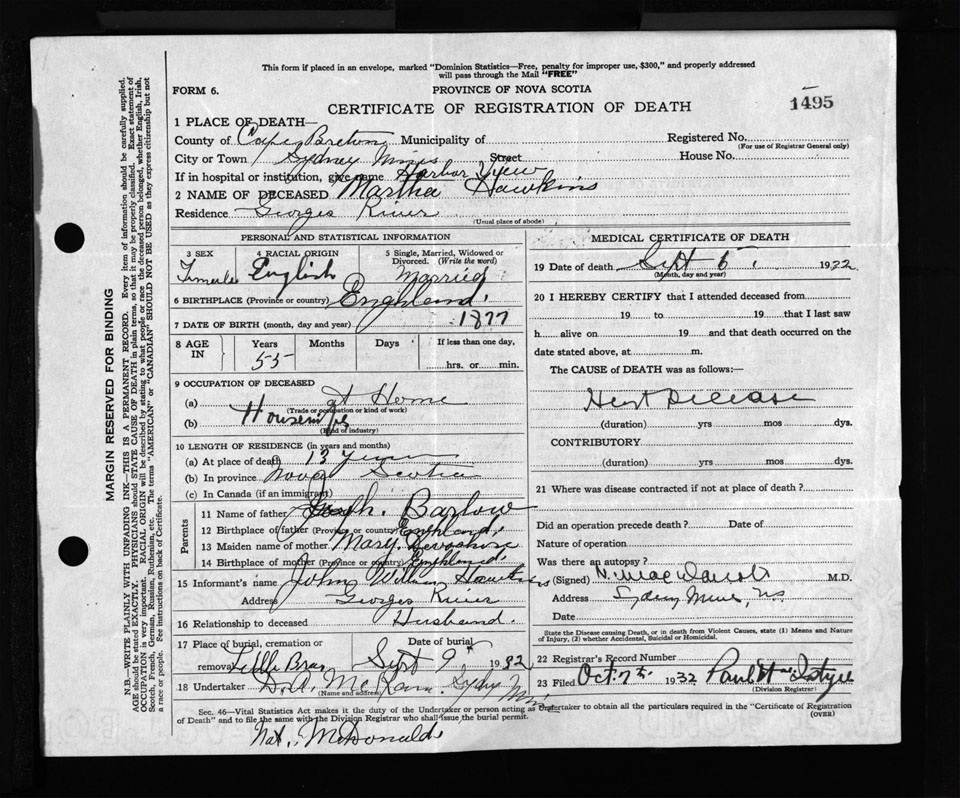 This form if placed in an envelope, marked "Dominion Statistics—Free, penalty for improper use, $300," and properly addressed
will pass through the Mail "FREE"
FORM 6.
PROVINCE OF NOVA SCOTIA
CERTIFICATE OF REGISTRATION OF DEATH
1495
1 PLACE OF DEATH—
County of Cape Breton Municipality of
Registered No.
(For use of Registrar General only)
City or Town Sydney Mines Street
House No.
If in hospital or institution, give name Harbor View
2 NAME OF DECEASED Martha Hawkins
Residence Georges River
(Usual place of abode)
PERSONAL AND STATISTICAL INFORMATION
3 SEX
Female
4 RACIAL ORIGIN
English
5 Single, Married, Widowed or
Divorced. (Write the word)
Married
6 BIRTHPLACE (Province or country) England.
7 DATE OF BIRTH (month, day and year) 1877
8 AGE IN
Years
55
Months
Days
If less than one day,
hrs. or min.
9 OCCUPATION OF DECEASED
(a) at Home
(Trade or occupation or kind of work)
(b) Housewife
(Kind of industry)
10 LENGTH OF RESIDENCE (in years and months)
(a) At place of death 13 years
(b) In province Nova Scotia
(c) In Canada (if an immigrant)
Parents
11 Name of father Joseph. Barlow
12 Birthplace of father (Province or country) England.
13 Maiden name of mother Mary
14 Birthplace of mother (Province or country) England.
15 Informant's name John William Hawkins
Address Georges River
16 Relationship to deceased Husband.
17 Place of burial, cremation or
removal Little Bras
Date of burial
Sept 9th 1932
18 Undertaker D. A. McKane. Sydney M
(Name and address)
MEDICAL CERTIFICATE OF DEATH
19 Date of death Sept 6, 1932
(Month, day and year)
20 I HEREBY CERTIFY that I attended deceased from
19 to 19 that I last saw
h alive on 19 and that death occurred on the
date stated above, at m.
The CAUSE of DEATH was as follows:—
Heart Disease
(duration) yrs mos dys.
CONTRIBUTORY.
(duration) yrs mos. dys.
21 Where was disease contracted if not at place of death?
Did an operation precede death? Date of
Nature of operation
Was there an autopsy?
(Signed) M.D.
Address Sydney Mines, NS
Date
State the Disease causing Death, or in death from Violent Causes, state (1) Means and Nature
of Injury, (2) whether Accidental, Suicidal or Homicidal.
22 Registrar's Record Number
23 Filed Oct. 7th 1932 Paul
(Division Registrar)
Sec. 46—Vital Statistics Act makes it the duty of the Undertaker or person acting as Undertaker to obtain all the particulars required in the "Certificate of Registration
of Death" and to file the same with the Division Registrar who shall issue the burial permit.
(OVER)
Nat. McDonald
MARGIN RESERVED FOR BINDING
N.B.—WRITE PLAINLY WITH UNFADING INK—THIS IS A PERMANENT RECORD. Every item of information should be carefully supplied.
AGE should be stated EXACTLY. PHYSICIANS should STATE CAUSE OF DEATH in plain terms, so that it may be properly classified. Exact statement of
OCCUPATION is very important. RACIAL ORIGIN will be described by stating to what people or race the deceased person belonged, whether English, Irish,
Scotch, French, German, Russian, Ruthenian, etc. The terms "AMERICAN" or "CANADIAN" SHOULD NOT BE USED as they express citizenship but not
a race or people. See instructions on back of Certificate.